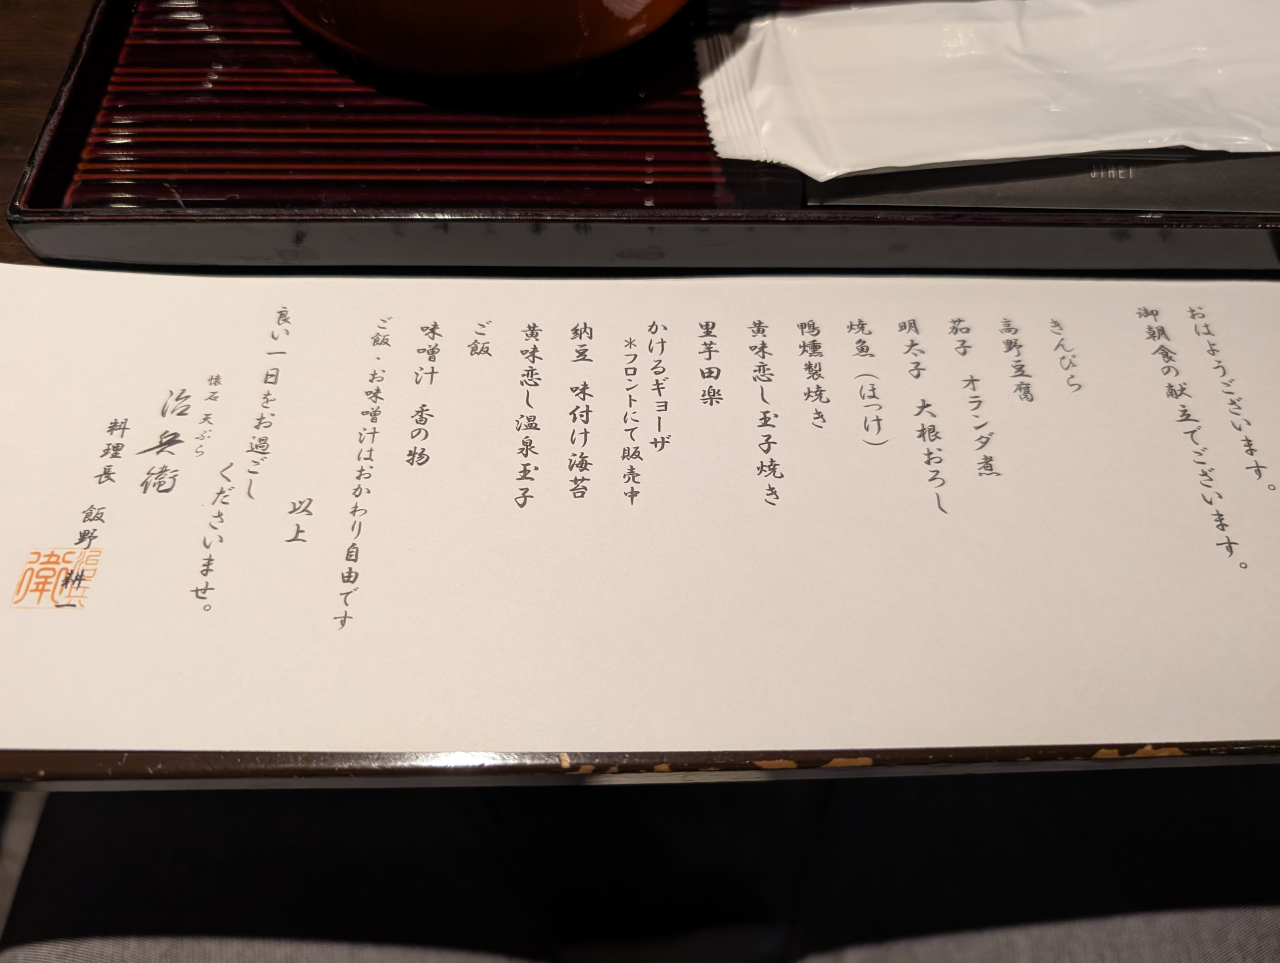 おはようございます。
御朝食の献立でございます。
きんぴら
高野豆腐
茄子　オランダ煮
明太子　大根おろし
焼魚（ほっけ）
鴨燻製焼き
黄味恋し玉子焼き
里芋田楽
かけるギョーザ
＊フロントにて販売中
納豆　味付け海苔
黄味恋し温泉玉子
ご飯
味噌汁　香の物
ご飯・お味噌汁はおかわり自由です
以上
良い一日をお過ごし
くださいませ。
懐石　天ぷら
治兵衛
料理長　飯野　耕一
治兵衛
JIHEI